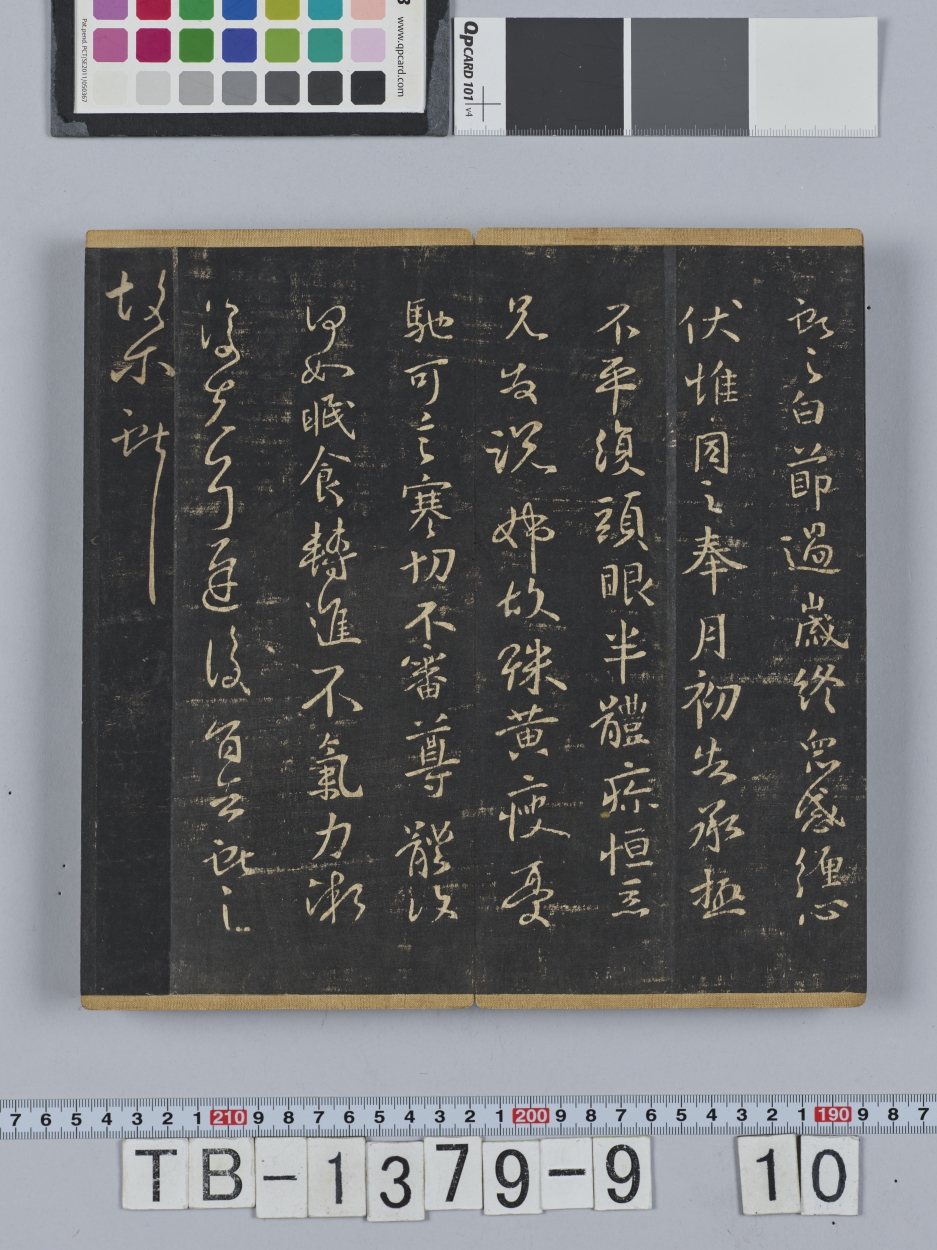 B www.qpcard.com
Pat.pend. PCT/SE2011/050367
QPCARD 101 v4
獻之白節過歲終眾感纏心
伏惟同之奉月初告承極
不平須頭眼半體疼恒
兄說姊故殊黃瘦憂
馳可言寒切不審尊體復
何如眠食轉進不氣力漸
復遲復獻之
故尔獻
7 6 5 4 3 2 1 210 9 8 7 6 5 4 3 2 1 200 9 8 7 6 5 4 3 2 1 190 9 8 7
TB-1379-9 10